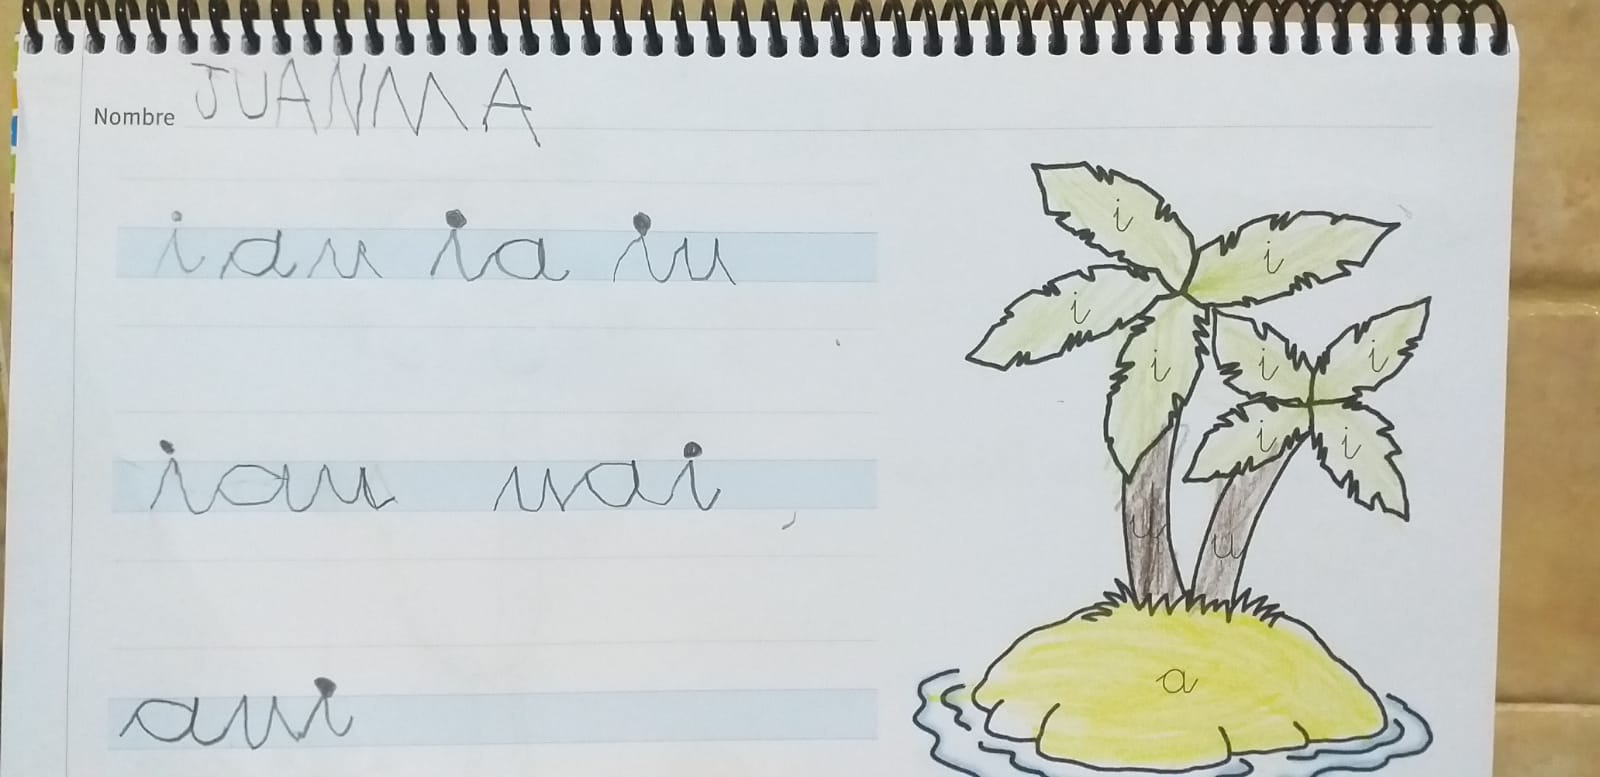 Nombre JUANMA
iau ia iu
iau uai
aui
i
i
i
i
i
i
i
i
u
u
a